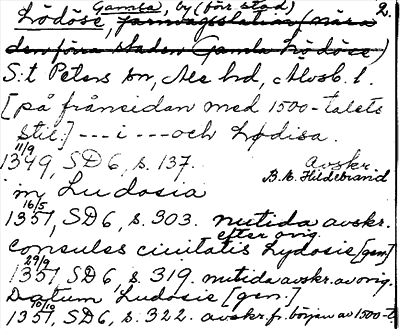 Gamla, by (förr stad) 2.
Lödöse, järnvägsstation (nära
den förra staden Gamla Lödöse)
S:t Peters sn, Ale hd, Älvsb. l.
[på frånsidan med 1500-talets
stil:] --- i --- och Lødisa.
11/9
1349, SD 6, s. 137. avskr.
B. E. Hildebrand
in Ludosia
16/5
1351, SD 6, s. 303. nutida avskr.
efter orig.
consules ciuitatis Lydosie [gen.]
29/9
1351, SD 6, s. 319. nutida avskr. av orig.
Datum Ludosie [gen.]
1351, SD 6, s. 322. avskr. fr. början av 1500-t.